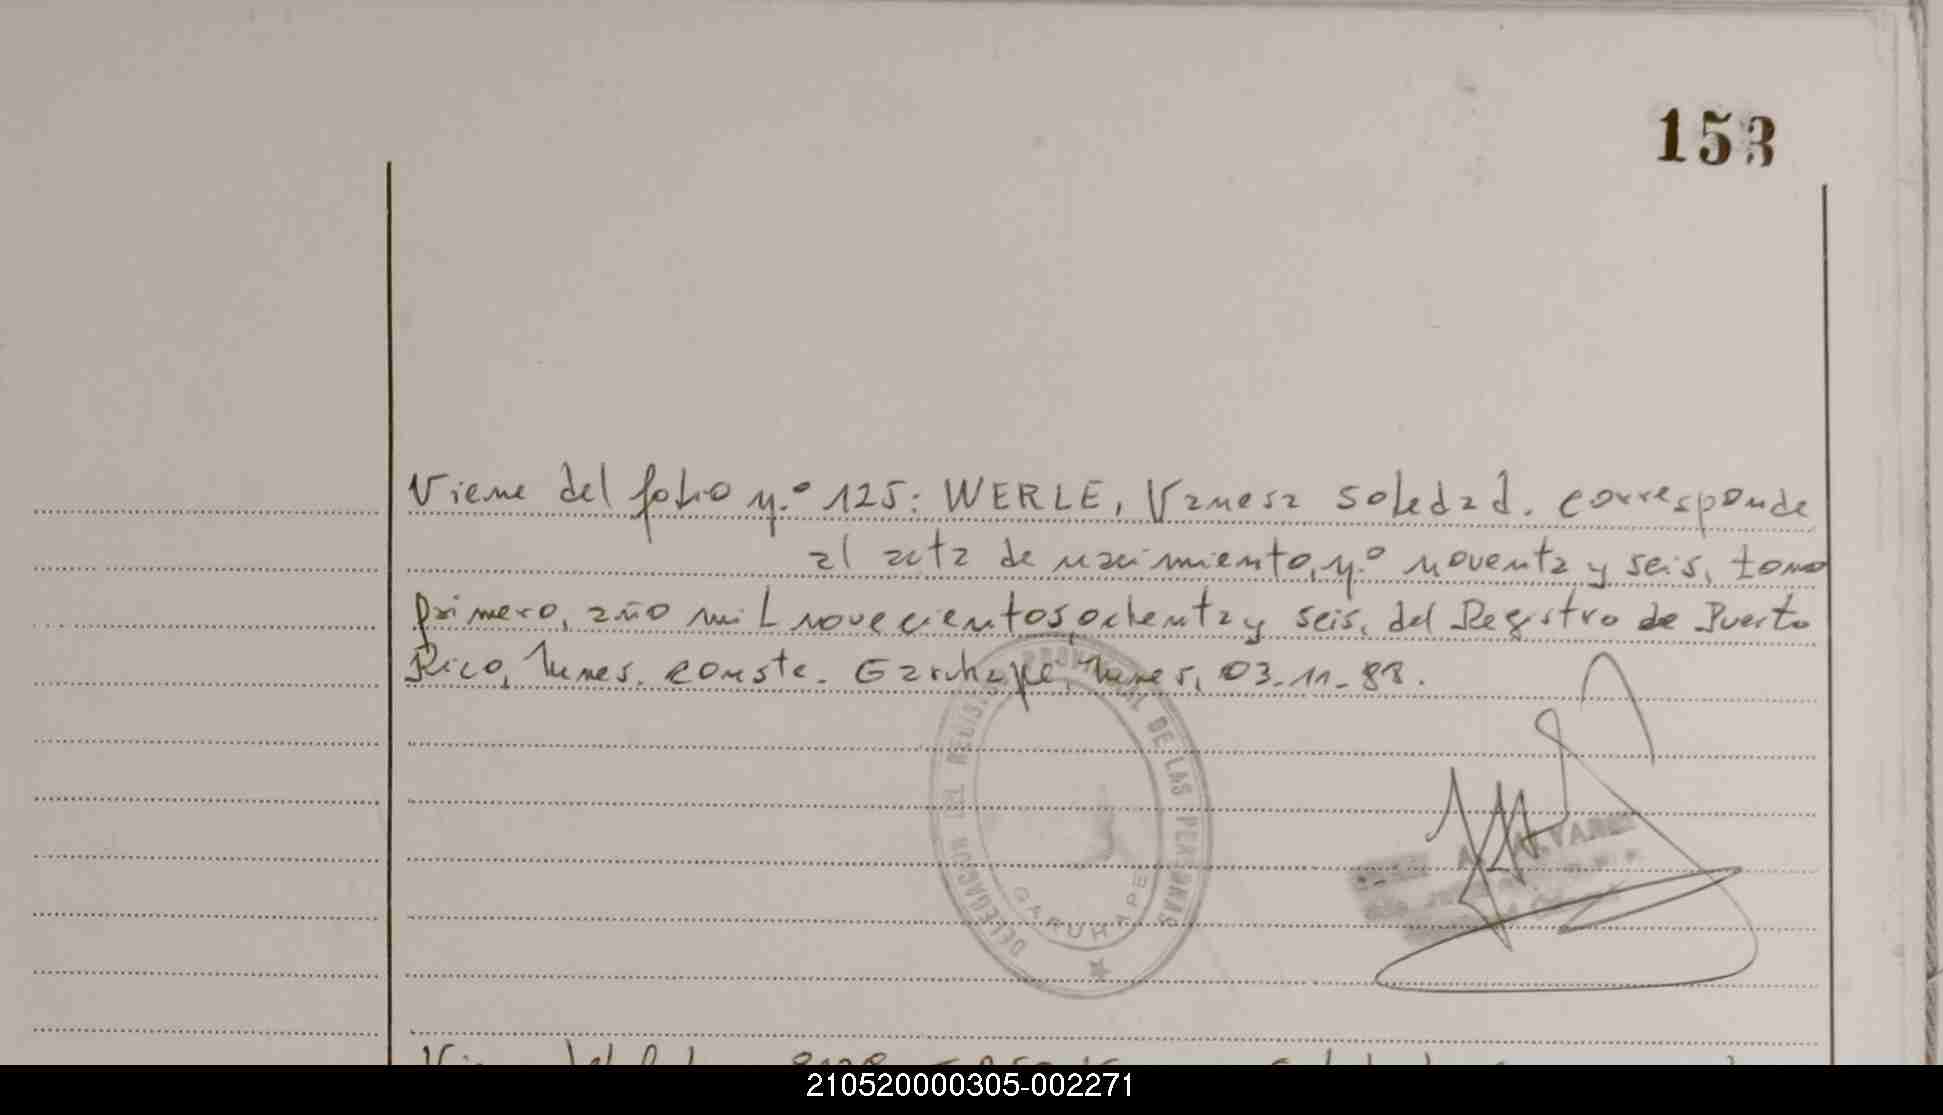 153
Viene del folio n.º 125: WERLE, Vanesa Soledad. corresponde
al acta de nacimiento, n.º noventa y seis, tomo
primero, año mil novecientos ochenta y seis, del Registro de Puerto
Rico, Mnes. conste. Garuhape, Mnes, 03-11-88.
DELEGACION DEL REGIST. PROVINCIAL DE LAS PERSONAS
GARUHAPE
210520000305-002271